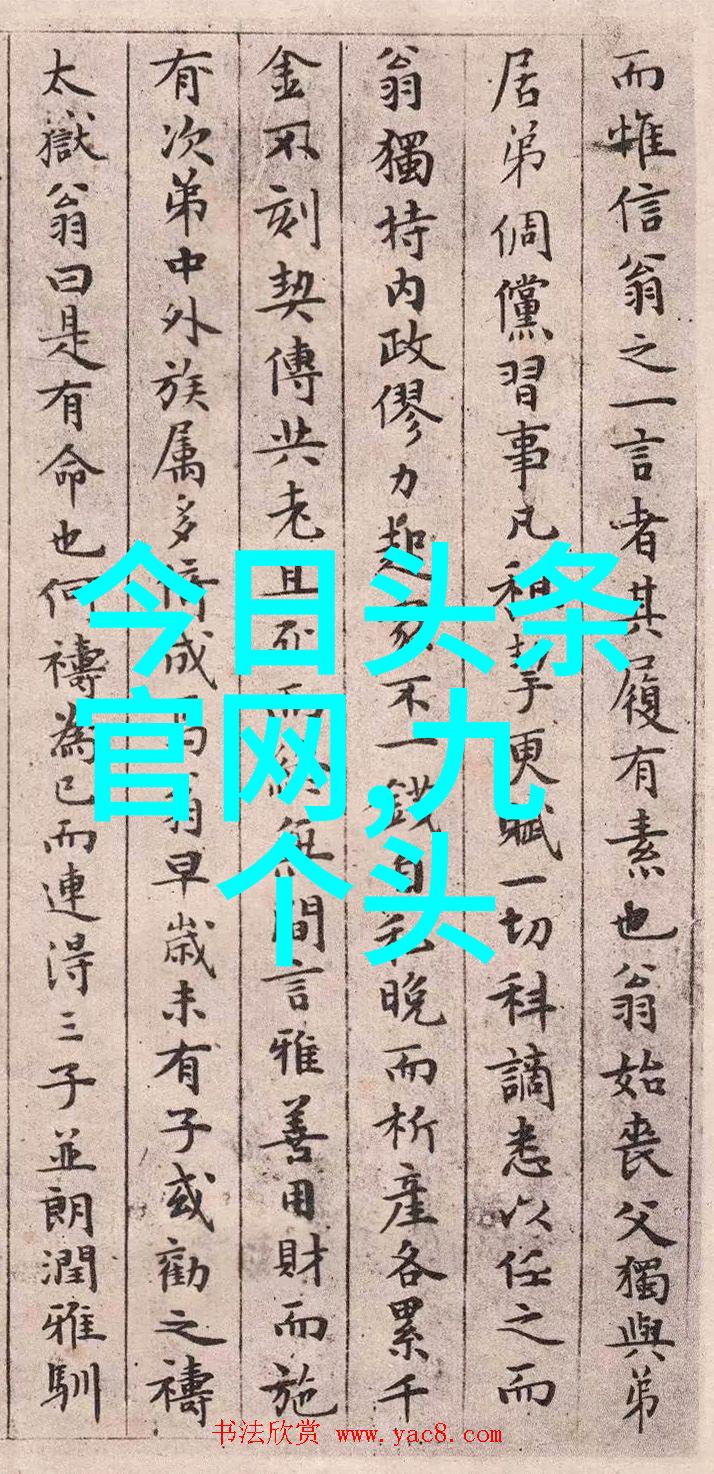 而惟信翁之一言者其履有素也翁始喪父獨與弟
居弟倜儻習事凡和更賦一切科謫悉以任之而
翁獨持内政僇力起不一錢自私晚而析產各累千
金不刻契傳共老且死而終無間言雅善用財而施
有次第中外族属多倚成翁早歲未有子或勸之禱
太嶽翁曰是有命也何禱為已而連得三子並朗潤雅馴
今日头条
官网,九
个头
书法欣赏 www.yac8.com